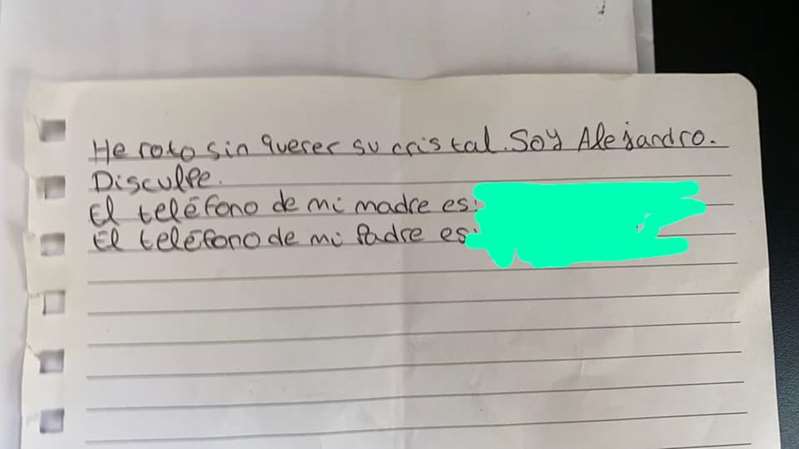 He roto sin querer su cristal. Soy Alejandro.
Disculpe.
El teléfono de mi madre es:
El teléfono de mi padre es: